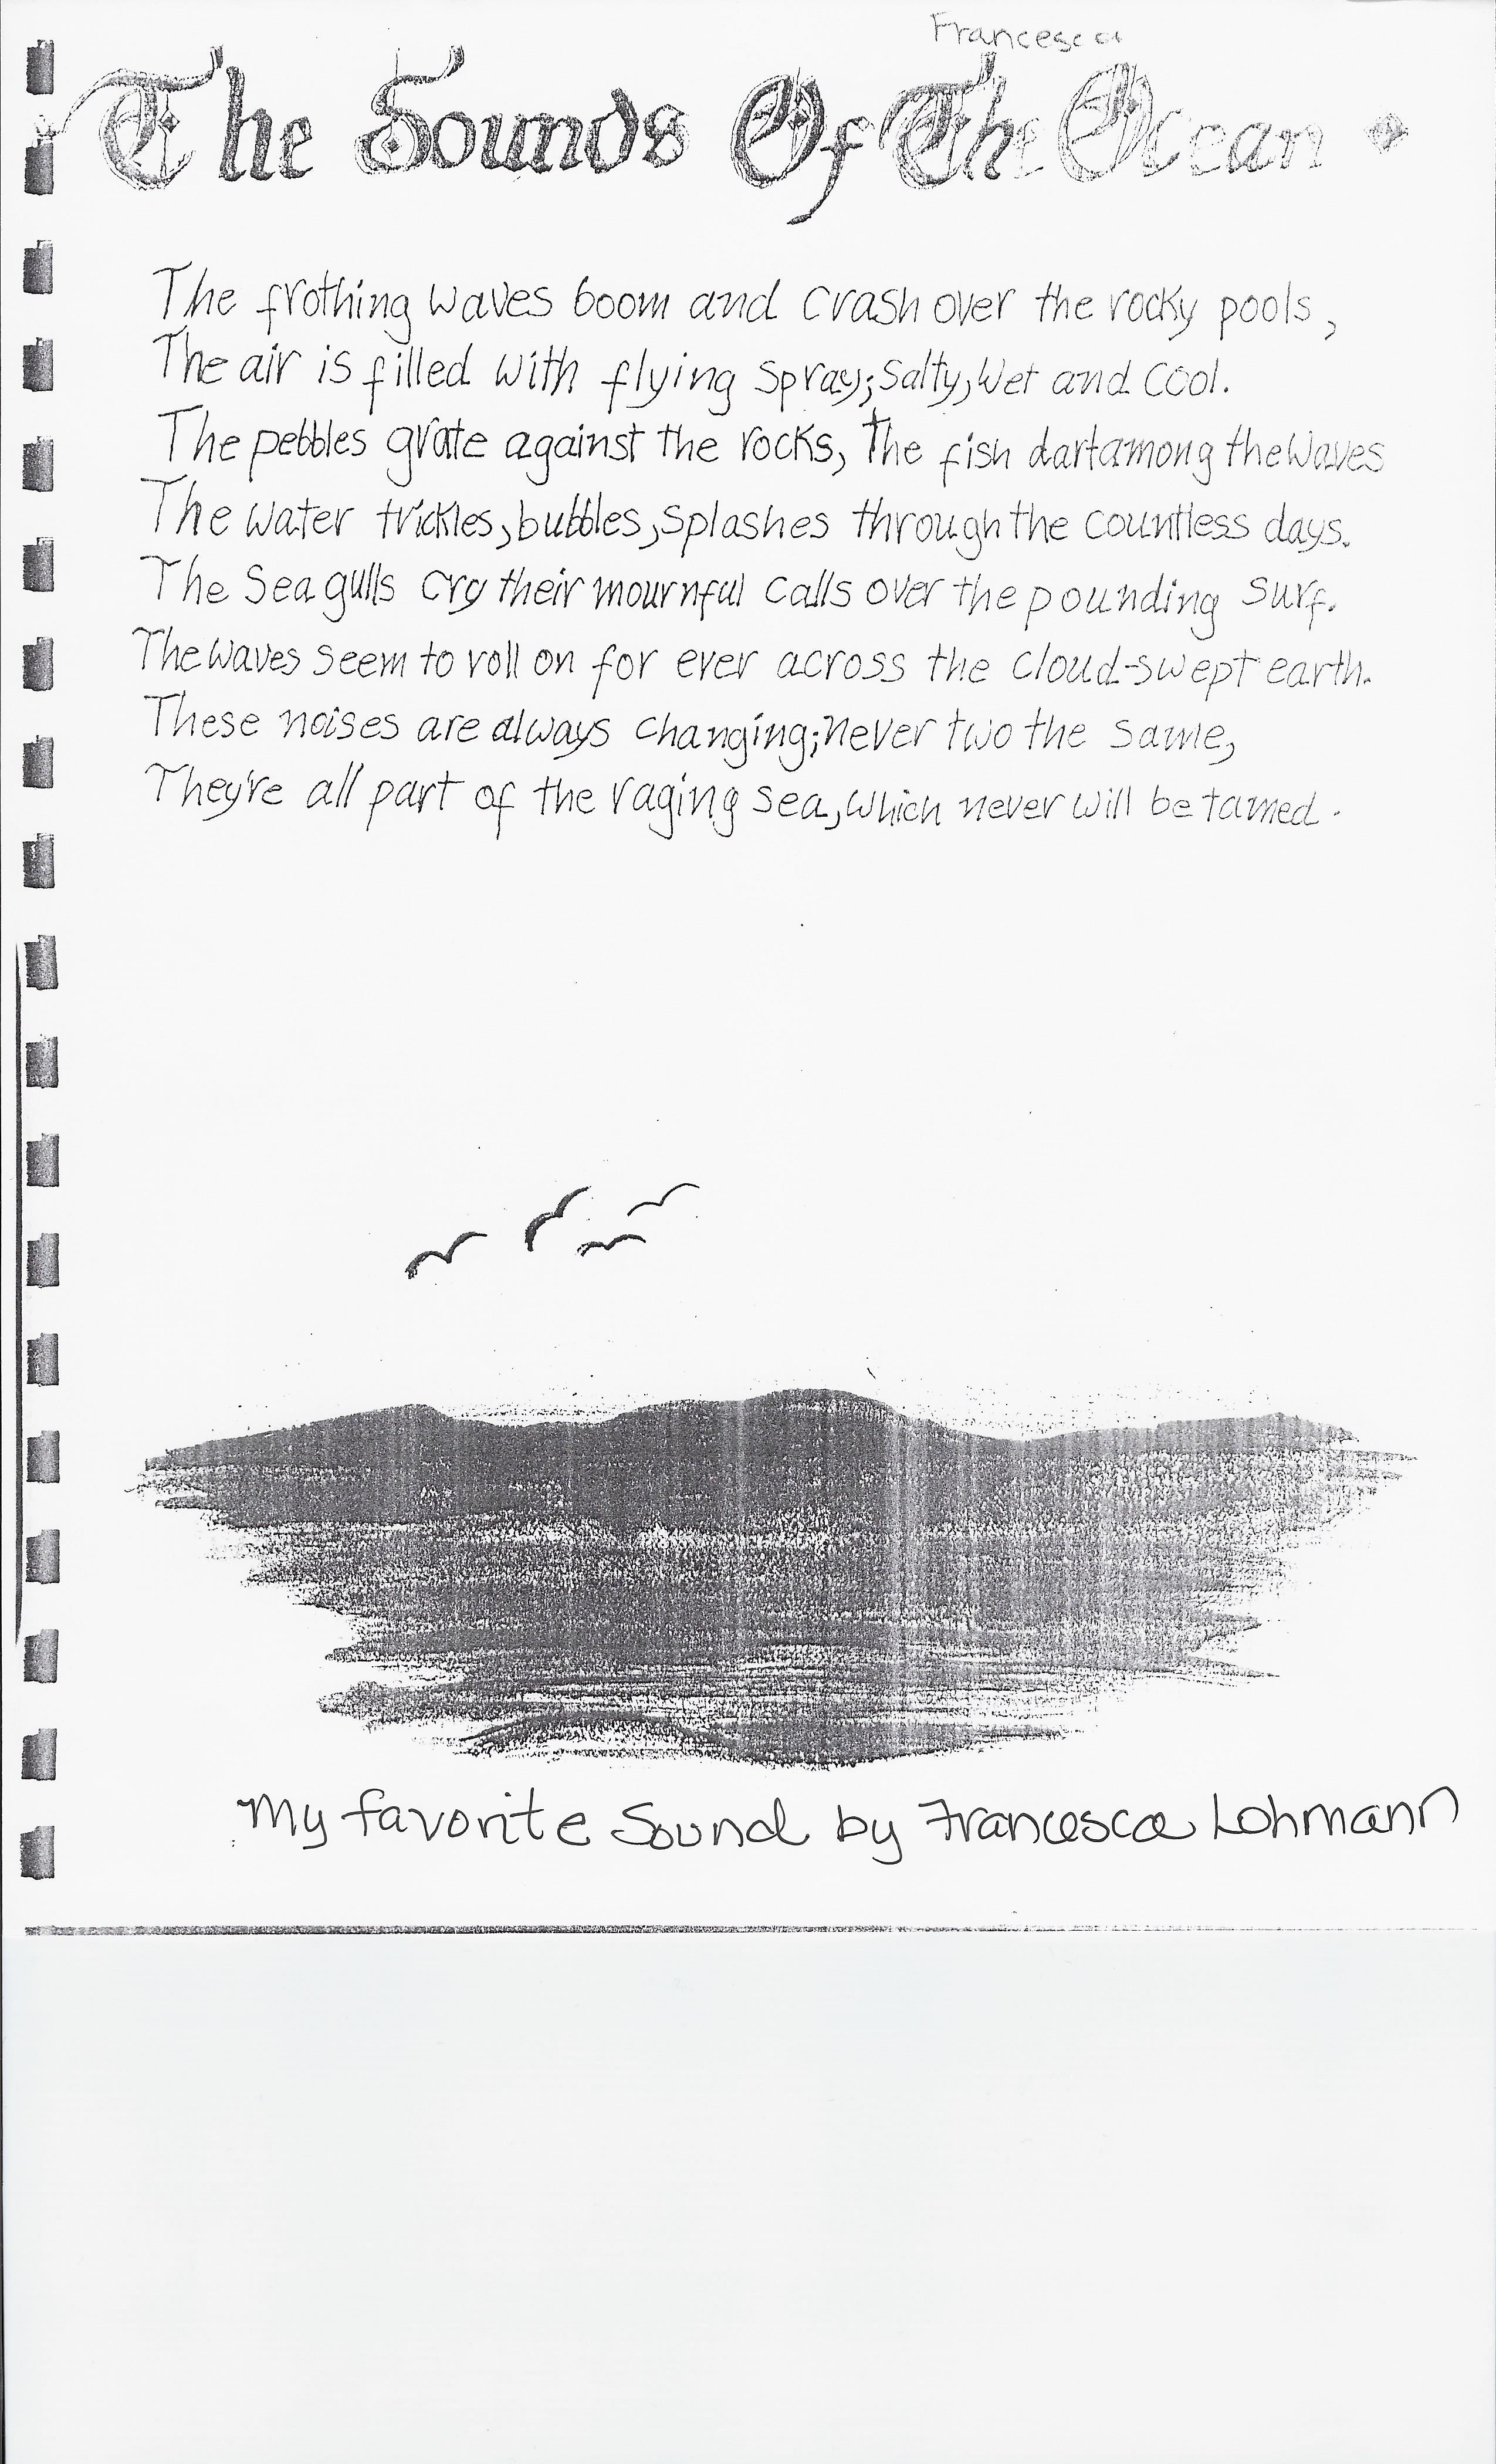 Francesca
The Sounds Of The Ocean
The frothing waves boom and crash over the rocky pools,
The air is filled with flying spray; salty, wet and cool.
The pebbles grate against the rocks, The fish dart among the waves
The water trickles, bubbles, splashes through the countless days.
The Sea gulls cry their mournful calls over the pounding surf.
The waves seem to roll on for ever across the cloud-swept earth.
These noises are always changing; never two the same,
They're all part of the raging sea, which never will be tamed.
My favorite Sound by Francesca Lohmann